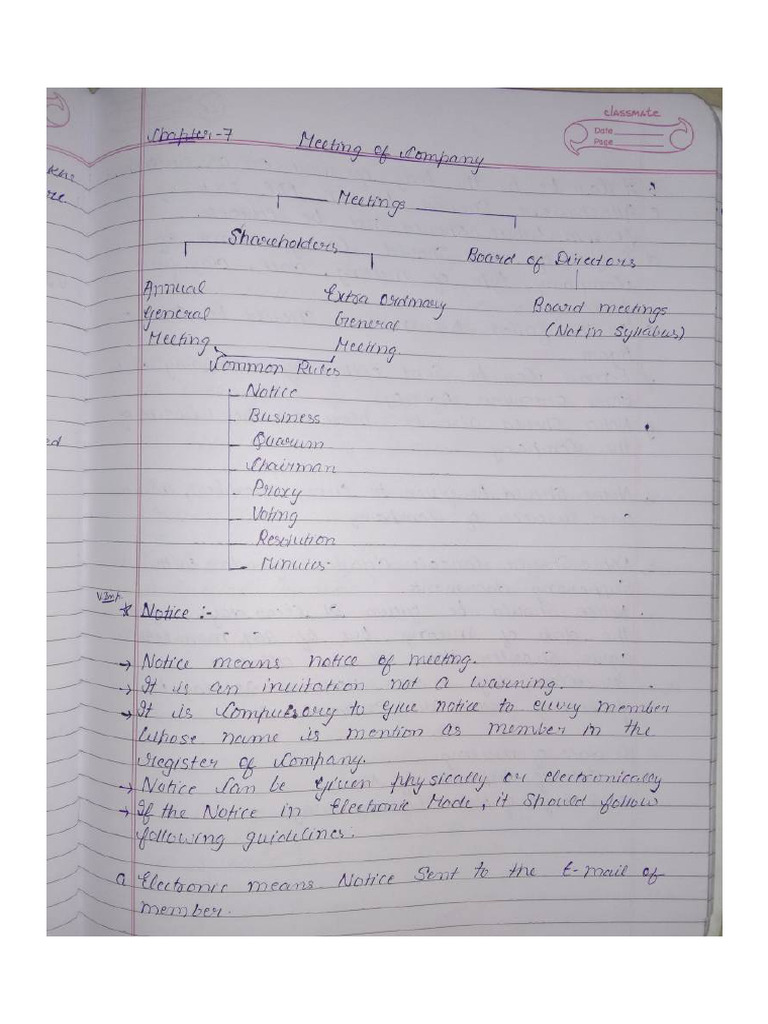 classmate
Date
Page
Chapter-7 Meeting of Company
Meetings
Shareholders Board of Directors
Annual Extra ordinary Board meetings
General General (Not in Syllabus)
Meeting Meeting.
Common Rules
Notice
Business
Quarum
Chairman
Proxy
Voting
Resolution
Minutes
V.Imp.
* Notice :-
→ Notice means notice of meeting.
→ It is an invitation not a warning.
→ It is Compulsory to give notice to every member
whose name is mention as member in the
register of Company.
→ Notice Can be given physically or electronically
→ If the Notice in Electronic Mode, it should follow
following guidelines.
a Electronic means Notice Sent to the E-mail of
member.